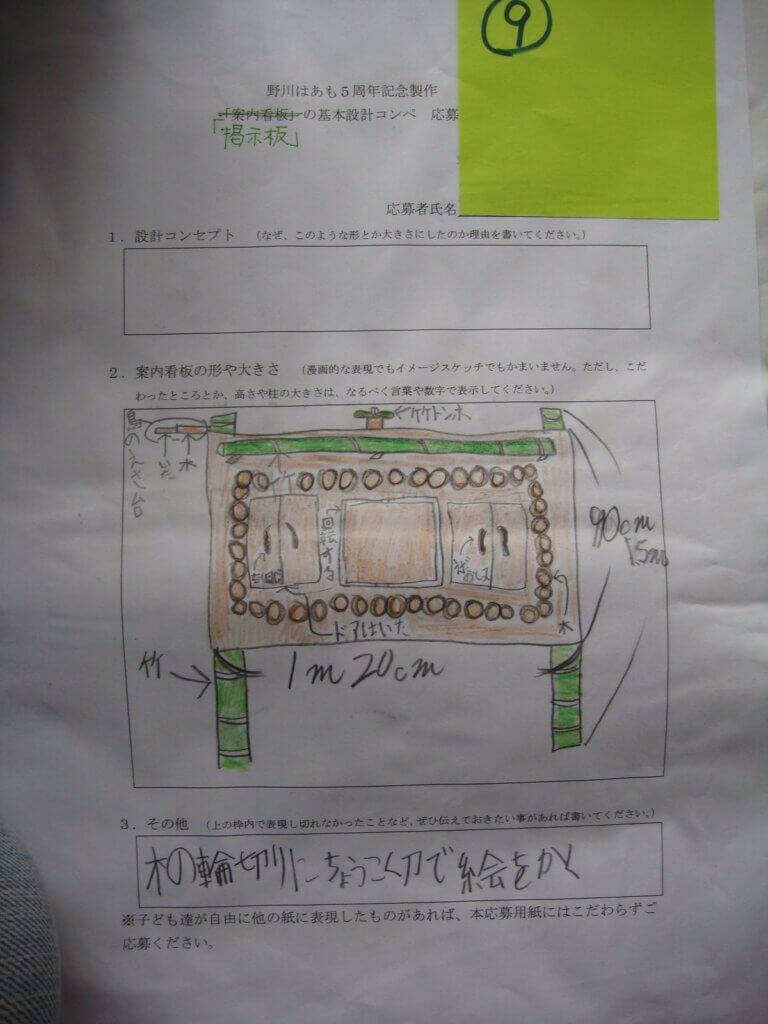 ⑨
野川はあも5周年記念製作
「案内看板」の基本設計コンペ 応募
「掲示板」
応募者氏名
1．設計コンセプト （なぜ、このような形とか大きさにしたのか理由を書いてください。）
2．案内看板の形や大きさ （漫画的な表現でもイメージスケッチでもかまいません。ただし、こだ
わったところとか、高さや柱の大きさは、なるべく言葉や数字で表示してください。）
鳥のえさ台
いた
木
竹とんぼ
回転する
ドアはいた
木
90cm
1.5m
竹
1m20cm
3．その他 （上の枠内で表現し切れなかったことなど、ぜひ伝えておきたい事があれば書いてください。）
木の輪切りにちょうこく刀で絵をかく
※子ども達が自由に他の紙に表現したものがあれば、本応募用紙にはこだわらずご
応募ください。